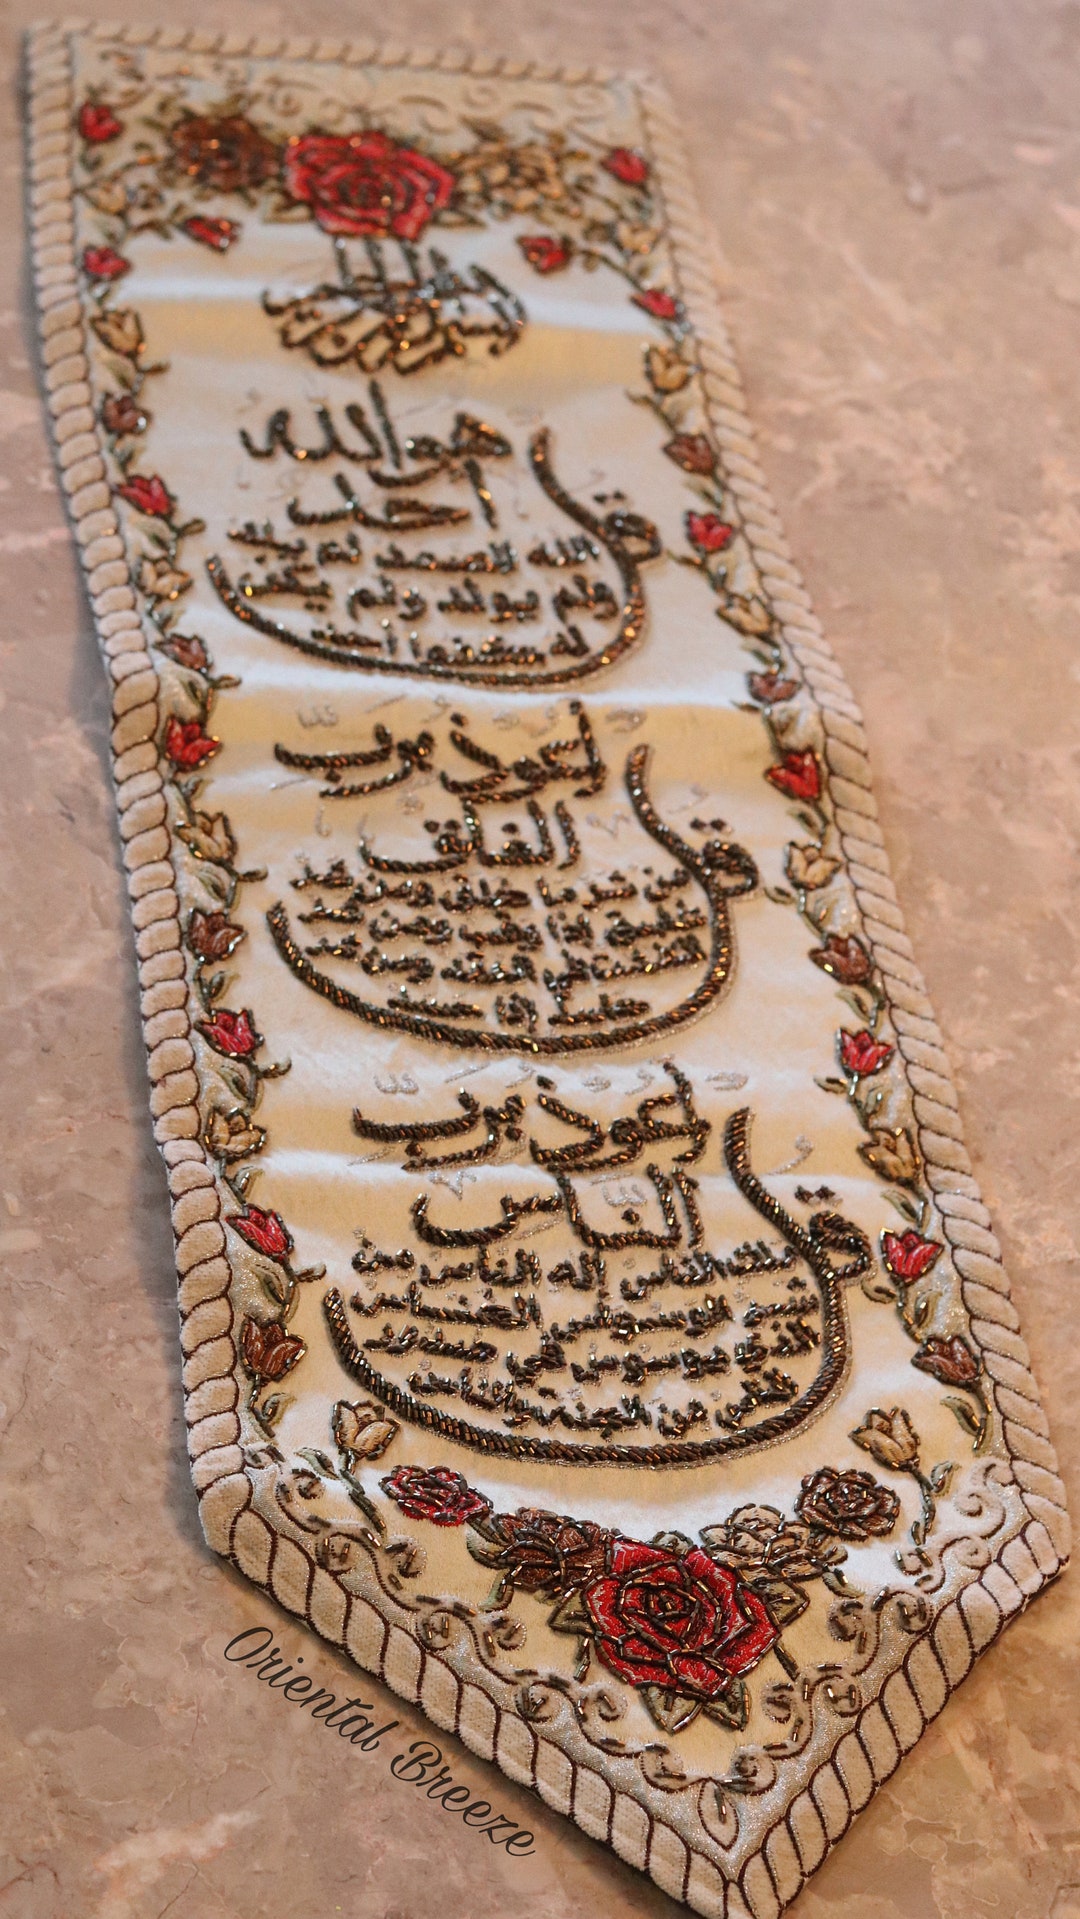 بسم الله الرحمن الرحيم
قل هو الله
احد
الله الصمد لم يلد
ولم يولد ولم يكن
له كفوا احد
قل اعوذ برب
الفلق
من شر ما خلق ومن شر
غاسق إذا وقب ومن شر
النفثت في العقد ومن شر
حاسد إذا حسد
قل اعوذ برب
الناس
ملك الناس إله الناس من
شر الوسواس الخناس
الذي يوسوس في صدور
الناس من الجنة والناس
Oriental Breeze